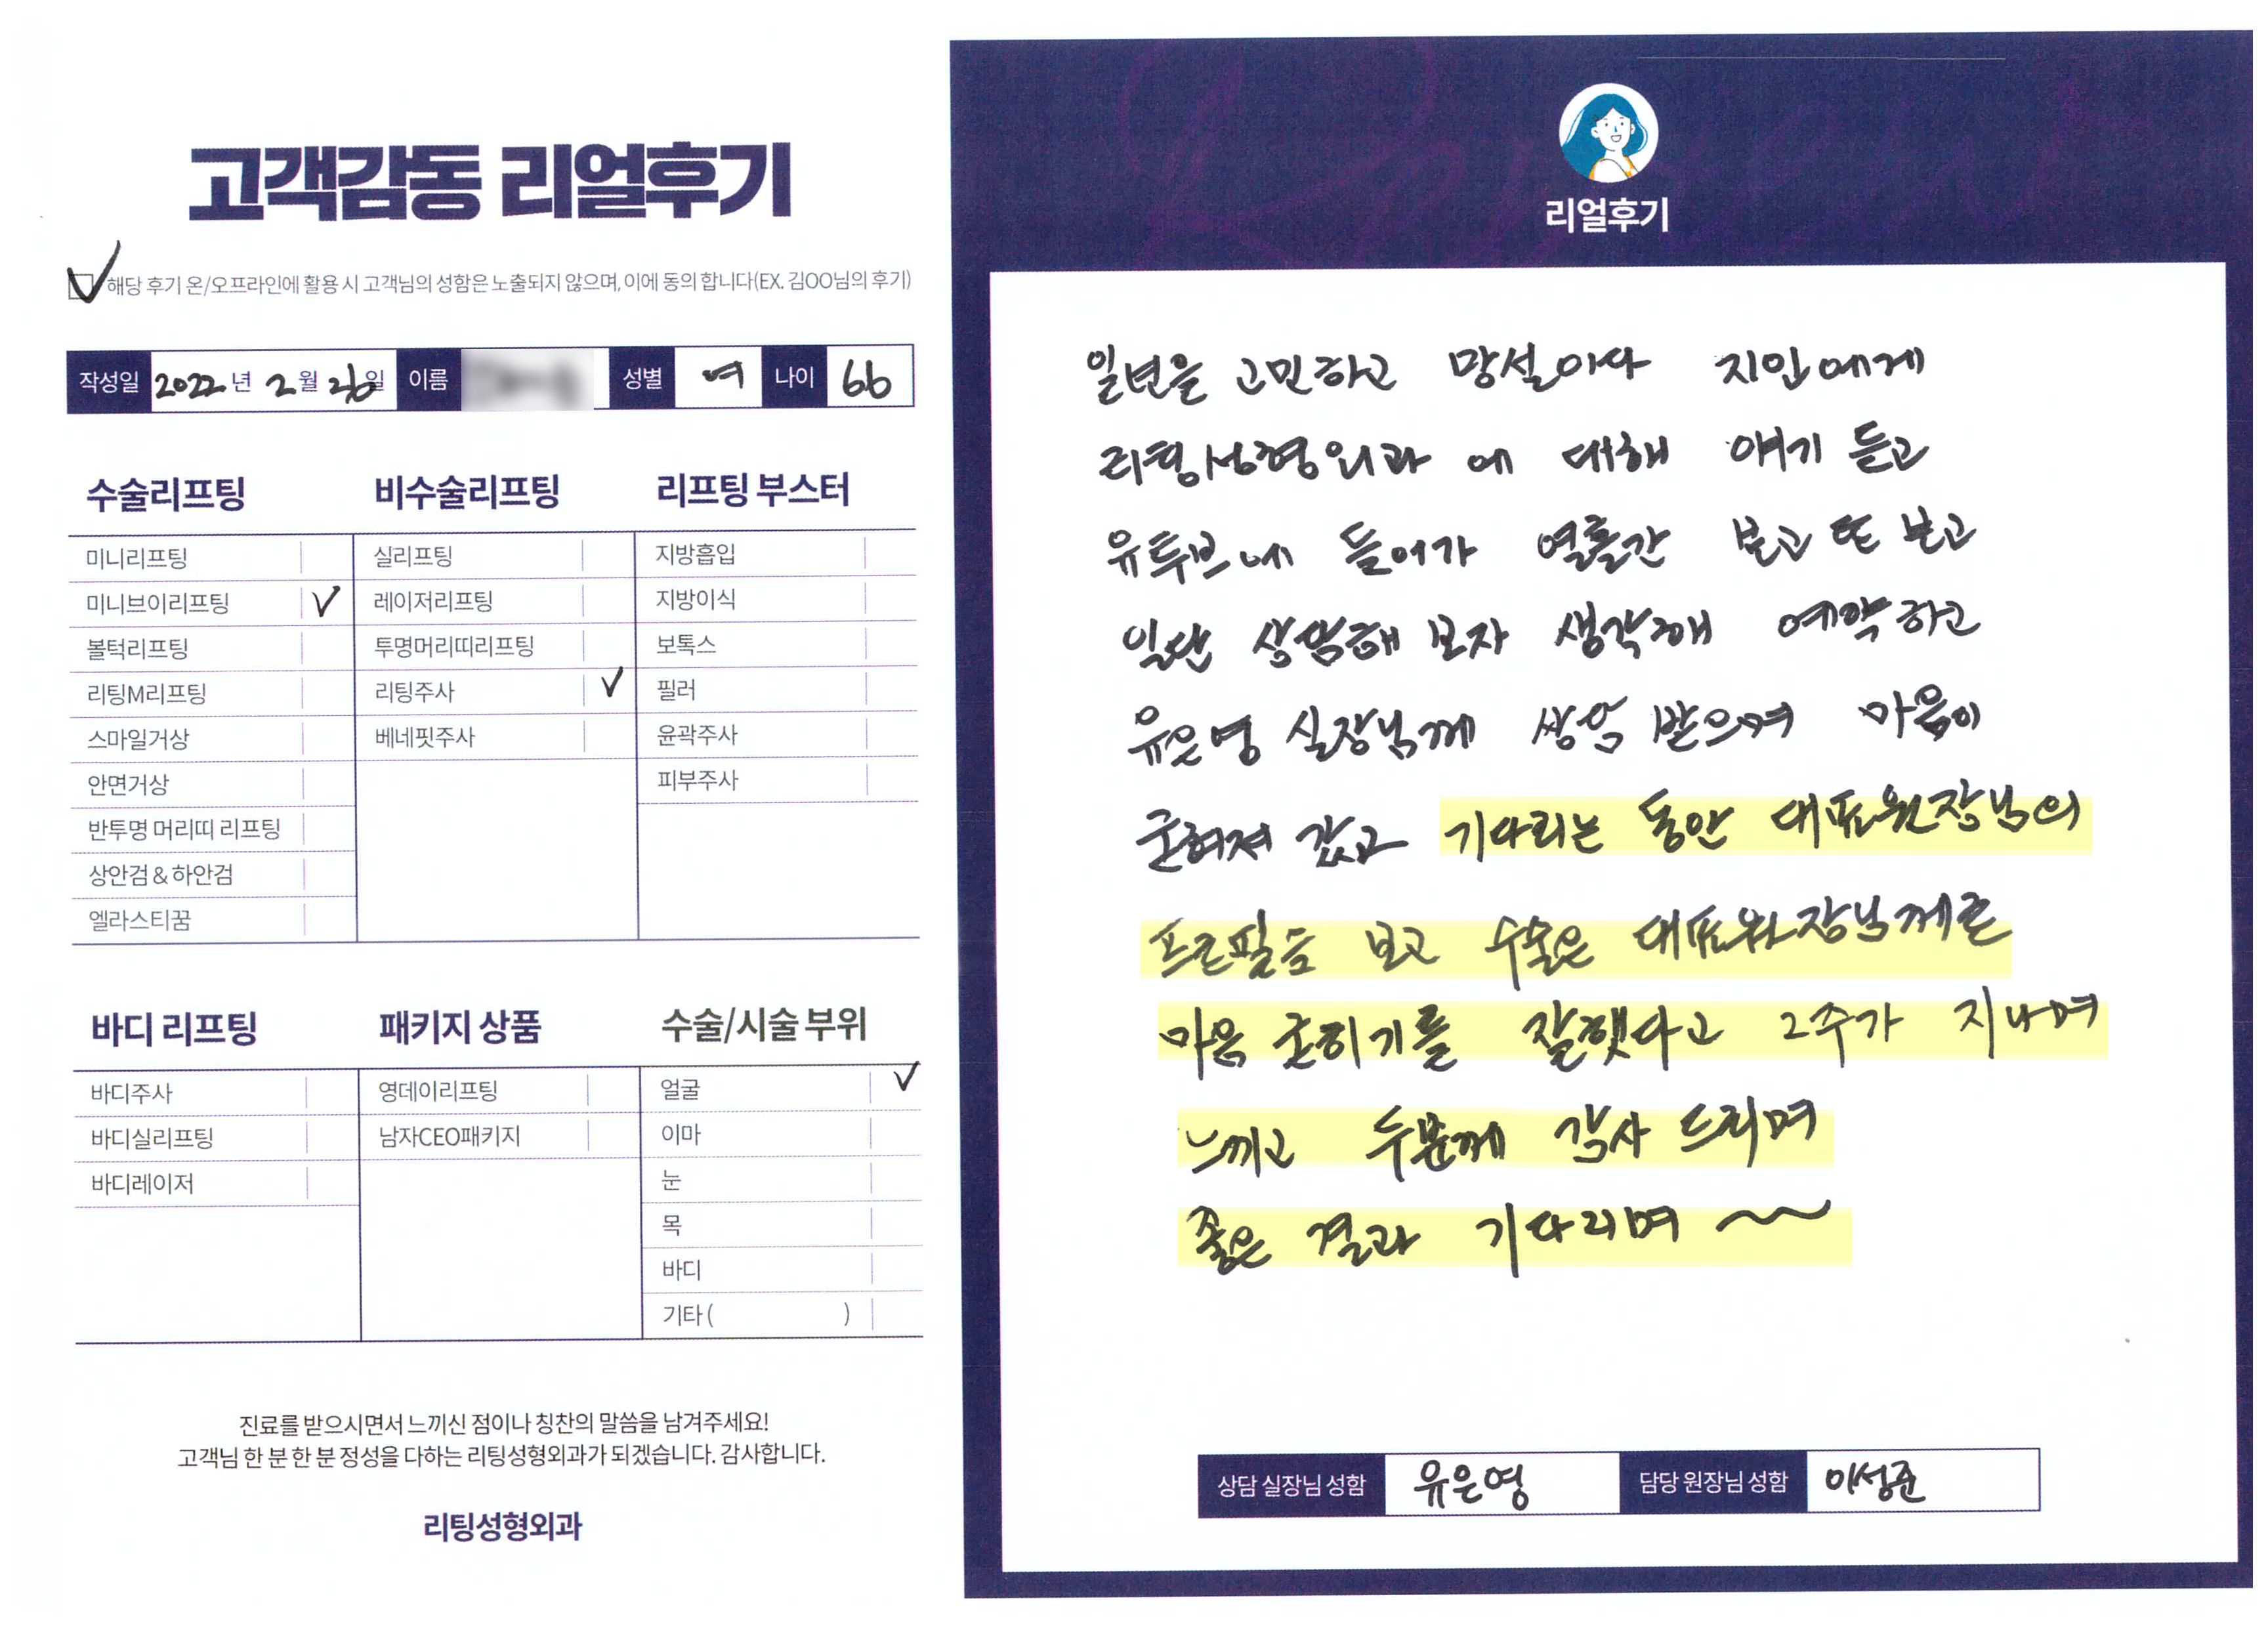 고객감동 리얼후기
해당 후기 온/오프라인에 활용 시 고객님의 성함은 노출되지 않으며, 이에 동의 합니다(EX. 김OO님의 후기)
작성일 2022년 2월 26일 이름 성별 여 나이 66
수술리프팅
미니리프팅
미니브이리프팅 ✓
볼턱리프팅
리팅M리프팅
스마일거상
안면거상
반투명 머리띠 리프팅
상안검 & 하안검
엘라스티꿈
비수술리프팅
실리프팅
레이저리프팅
투명머리띠리프팅
리팅주사 ✓
베네핏주사
리프팅 부스터
지방흡입
지방이식
보톡스
필러
윤곽주사
피부주사
바디 리프팅
바디주사
바디실리프팅
바디레이저
패키지 상품
영데이리프팅
남자CEO패키지
수술/시술 부위
얼굴 ✓
이마
눈
목
바디
기타 ( )
진료를 받으시면서 느끼신 점이나 칭찬의 말씀을 남겨주세요!
고객님 한 분 한 분 정성을 다하는 리팅성형외과가 되겠습니다. 감사합니다.
리팅성형외과
리얼후기
일년을 고민하고 망설이다 지인에게
리팅성형외과 에 대해 얘기 듣고
유투브에 들어가 열흘간 보고 또 보고
일단 상담해 보자 생각해 예약하고
유은영 실장님께 상담 받으며 마음이
굳혀져 갔고 기다리는 동안 대표원장님의
프로필을 보고 수술은 대표원장님께로
마음 굳히기를 잘했다고 2주가 지나며
느끼고 두분께 감사 드리며
좋은 결과 기다리며 ~~
상담 실장님 성함 유은영 담당 원장님 성함 이성준